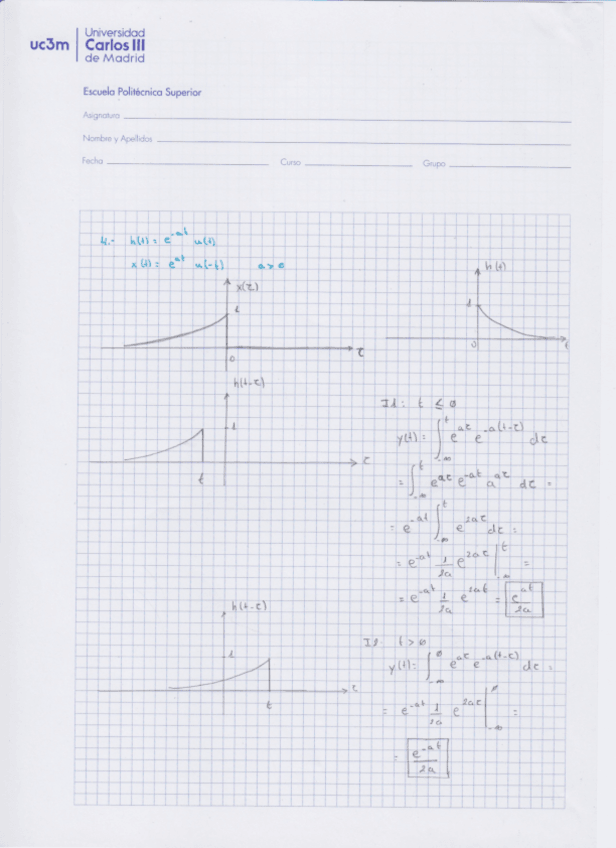 uc3m
Universidad
Carlos III
de Madrid
Escuela Politécnica Superior
Asignatura
Nombre y Apellidos
Fecha Curso Grupo
4.- h(t) = e^{-at} u(t)
x(t) = e^{at} u(-t) a > 0
x(τ)
1
0
τ
h(t)
1
0
t
h(t-τ)
1
t
τ
I1: t ≤ 0
y(t) = ∫_{-∞}^{t} e^{aτ} e^{-a(t-τ)} dτ
= ∫_{-∞}^{t} e^{aτ} e^{-at} a^{aτ} dτ =
= e^{-at} ∫_{-∞}^{t} e^{2aτ} dτ =
= e^{-at} 1/2a e^{2aτ} |_{-∞}^{t} =
= e^{-at} 1/2a e^{2at} = e^{at}/2a
h(t-τ)
1
t
τ
t > 0
y(t) = ∫_{-∞}^{0} e^{aτ} e^{-a(t-τ)} dτ =
= e^{-at} 1/2a e^{2aτ} |_{-∞}^{0} =
= e^{-at}/2a